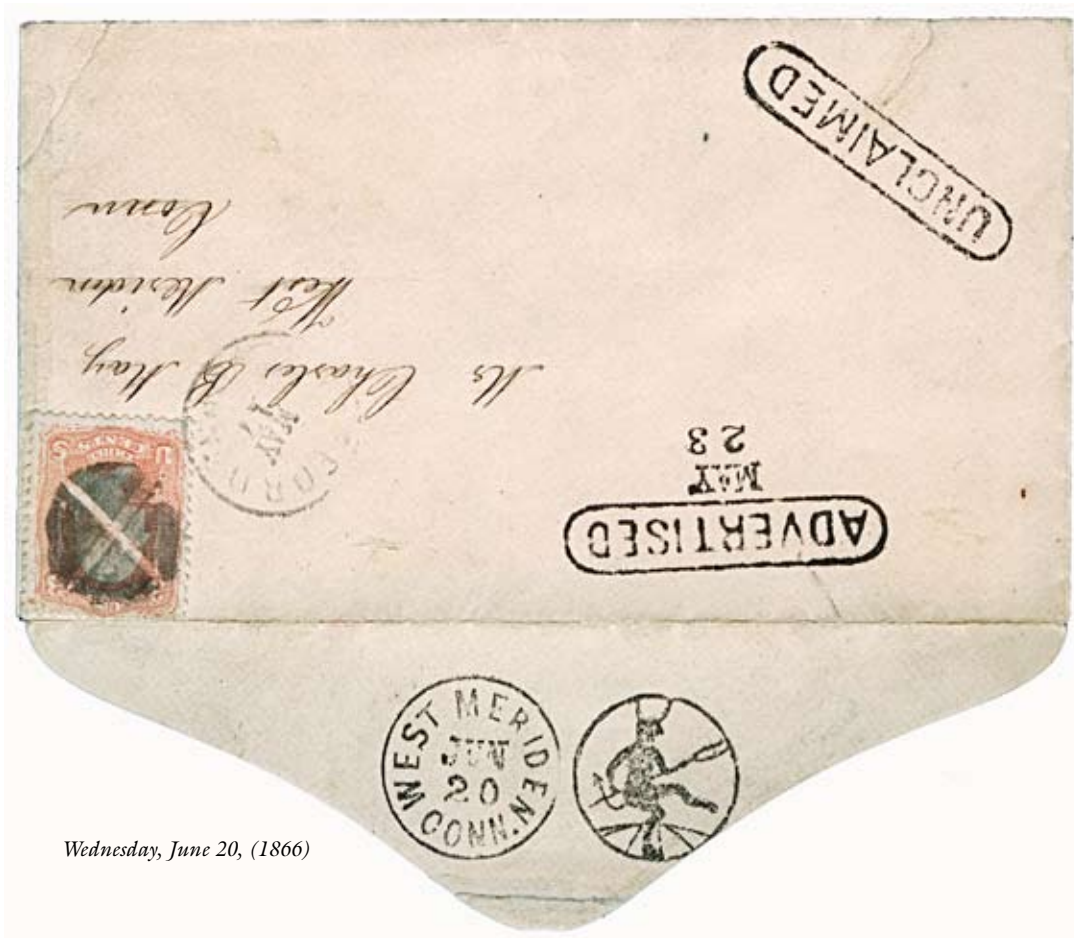 UNCLAIMED
Mr Charles B May
West Meriden
Conn
MAY
17
ADVERTISED
MAY
23
U S
THREE
CENTS
WEST MERIDEN
JUN
20
CONN.
Wednesday, June 20, (1866)